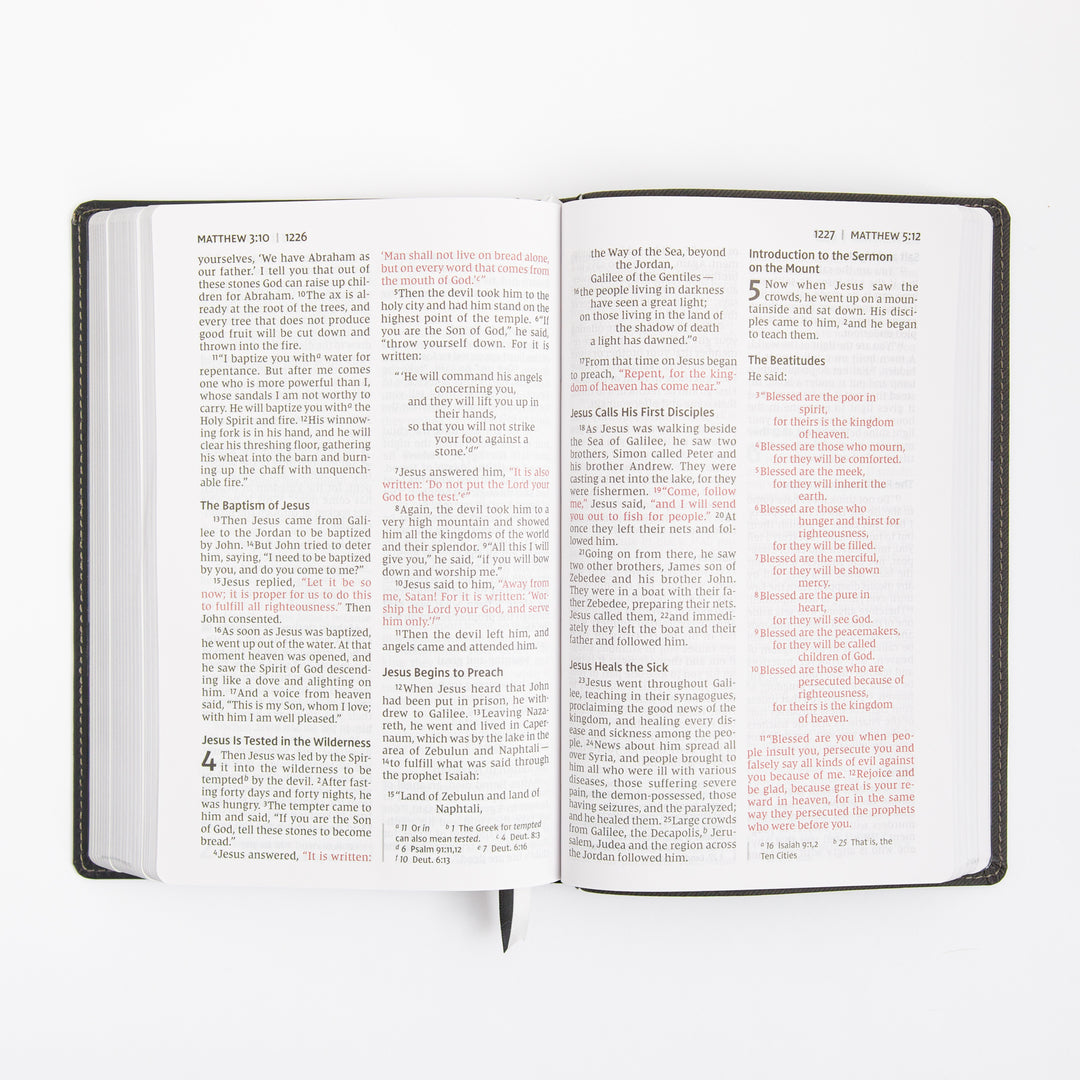 MATTHEW 3:10 | 1226
yourselves, ‘We have Abraham as
our father.’ I tell you that out of
these stones God can raise up chil-
dren for Abraham. 10The ax is al-
ready at the root of the trees, and
every tree that does not produce
good fruit will be cut down and
thrown into the fire.
11“I baptize you witha water for
repentance. But after me comes
one who is more powerful than I,
whose sandals I am not worthy to
carry. He will baptize you witha the
Holy Spirit and fire. 12His winnow-
ing fork is in his hand, and he will
clear his threshing floor, gathering
his wheat into the barn and burn-
ing up the chaff with unquench-
able fire.”
The Baptism of Jesus
13Then Jesus came from Gali-
lee to the Jordan to be baptized
by John. 14But John tried to deter
him, saying, “I need to be baptized
by you, and do you come to me?”
15Jesus replied, “Let it be so
now; it is proper for us to do this
to fulfill all righteousness.” Then
John consented.
16As soon as Jesus was baptized,
he went up out of the water. At that
moment heaven was opened, and
he saw the Spirit of God descend-
ing like a dove and alighting on
him. 17And a voice from heaven
said, “This is my Son, whom I love;
with him I am well pleased.”
Jesus Is Tested in the Wilderness
4 Then Jesus was led by the Spir-
it into the wilderness to be
temptedb by the devil. 2After fast-
ing forty days and forty nights, he
was hungry. 3The tempter came to
him and said, “If you are the Son
of God, tell these stones to become
bread.”
4Jesus answered, “It is written:
‘Man shall not live on bread alone,
but on every word that comes from
the mouth of God.’c”
5Then the devil took him to the
holy city and had him stand on the
highest point of the temple. 6“If
you are the Son of God,” he said,
“throw yourself down. For it is
written:
“‘He will command his angels
concerning you,
and they will lift you up in
their hands,
so that you will not strike
your foot against a
stone.’d”
7Jesus answered him, “It is also
written: ‘Do not put the Lord your
God to the test.’e”
8Again, the devil took him to a
very high mountain and showed
him all the kingdoms of the world
and their splendor. 9“All this I will
give you,” he said, “if you will bow
down and worship me.”
10Jesus said to him, “Away from
me, Satan! For it is written: ‘Wor-
ship the Lord your God, and serve
him only.’f”
11Then the devil left him, and
angels came and attended him.
Jesus Begins to Preach
12When Jesus heard that John
had been put in prison, he with-
drew to Galilee. 13Leaving Naza-
reth, he went and lived in Caper-
naum, which was by the lake in the
area of Zebulun and Naphtali—
14to fulfill what was said through
the prophet Isaiah:
15“Land of Zebulun and land of
Naphtali,
a 11 Or in b 1 The Greek for tempted
can also mean tested. c 4 Deut. 8:3
d 6 Psalm 91:11,12 e 7 Deut. 6:16
f 10 Deut. 6:13
1227 | MATTHEW 5:12
the Way of the Sea, beyond
the Jordan,
Galilee of the Gentiles—
16the people living in darkness
have seen a great light;
on those living in the land of
the shadow of death
a light has dawned.”a
17From that time on Jesus began
to preach, “Repent, for the king-
dom of heaven has come near.”
Jesus Calls His First Disciples
18As Jesus was walking beside
the Sea of Galilee, he saw two
brothers, Simon called Peter and
his brother Andrew. They were
casting a net into the lake, for they
were fishermen. 19“Come, follow
me,” Jesus said, “and I will send
you out to fish for people.” 20At
once they left their nets and fol-
lowed him.
21Going on from there, he saw
two other brothers, James son of
Zebedee and his brother John.
They were in a boat with their fa-
ther Zebedee, preparing their nets.
Jesus called them, 22and immedi-
ately they left the boat and their
father and followed him.
Jesus Heals the Sick
23Jesus went throughout Gali-
lee, teaching in their synagogues,
proclaiming the good news of the
kingdom, and healing every dis-
ease and sickness among the peo-
ple. 24News about him spread all
over Syria, and people brought to
him all who were ill with various
diseases, those suffering severe
pain, the demon-possessed, those
having seizures, and the paralyzed;
and he healed them. 25Large crowds
from Galilee, the Decapolis,b Jeru-
salem, Judea and the region across
the Jordan followed him.
Introduction to the Sermon
on the Mount
5 Now when Jesus saw the
crowds, he went up on a moun-
tainside and sat down. His disci-
ples came to him, 2and he began
to teach them.
The Beatitudes
He said:
3“Blessed are the poor in
spirit,
for theirs is the kingdom
of heaven.
4Blessed are those who mourn,
for they will be comforted.
5Blessed are the meek,
for they will inherit the
earth.
6Blessed are those who
hunger and thirst for
righteousness,
for they will be filled.
7Blessed are the merciful,
for they will be shown
mercy.
8Blessed are the pure in
heart,
for they will see God.
9Blessed are the peacemakers,
for they will be called
children of God.
10Blessed are those who are
persecuted because of
righteousness,
for theirs is the kingdom
of heaven.
11“Blessed are you when peo-
ple insult you, persecute you and
falsely say all kinds of evil against
you because of me. 12Rejoice and
be glad, because great is your re-
ward in heaven, for in the same
way they persecuted the prophets
who were before you.
a 16 Isaiah 9:1,2 b 25 That is, the
Ten Cities